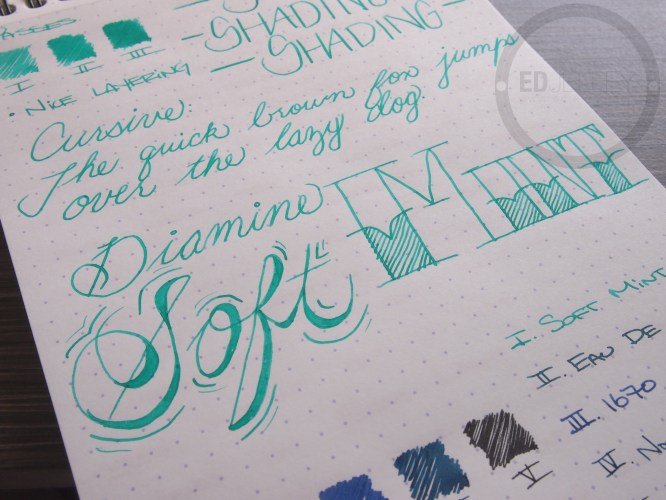 SHADING
— SHADING —
I II III
• NICE LAYERING
Cursive:
The quick brown fox jumps
over the lazy dog.
Diamine
Soft MINT
I. SOFT MINT
II. EAU DE
III. 1670
IV.
V
ED